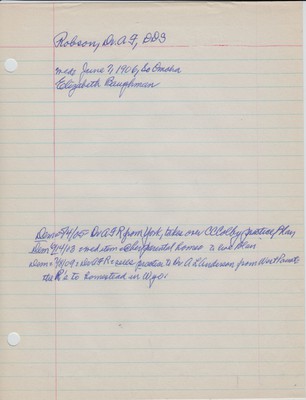 Robson, Dr. A F, DDS
weds June 7, 1906, So Omaha
Elizabeth Baughman
Dem 5/4/05 Dr A F R from York, takes over CC Colby practice/Plan
Dem 9/4/08 over parental homes
Dem 3/4/09 Dr A F R practice to Dr. A L Anderson, from West Point
the R's to homestead in Wyo